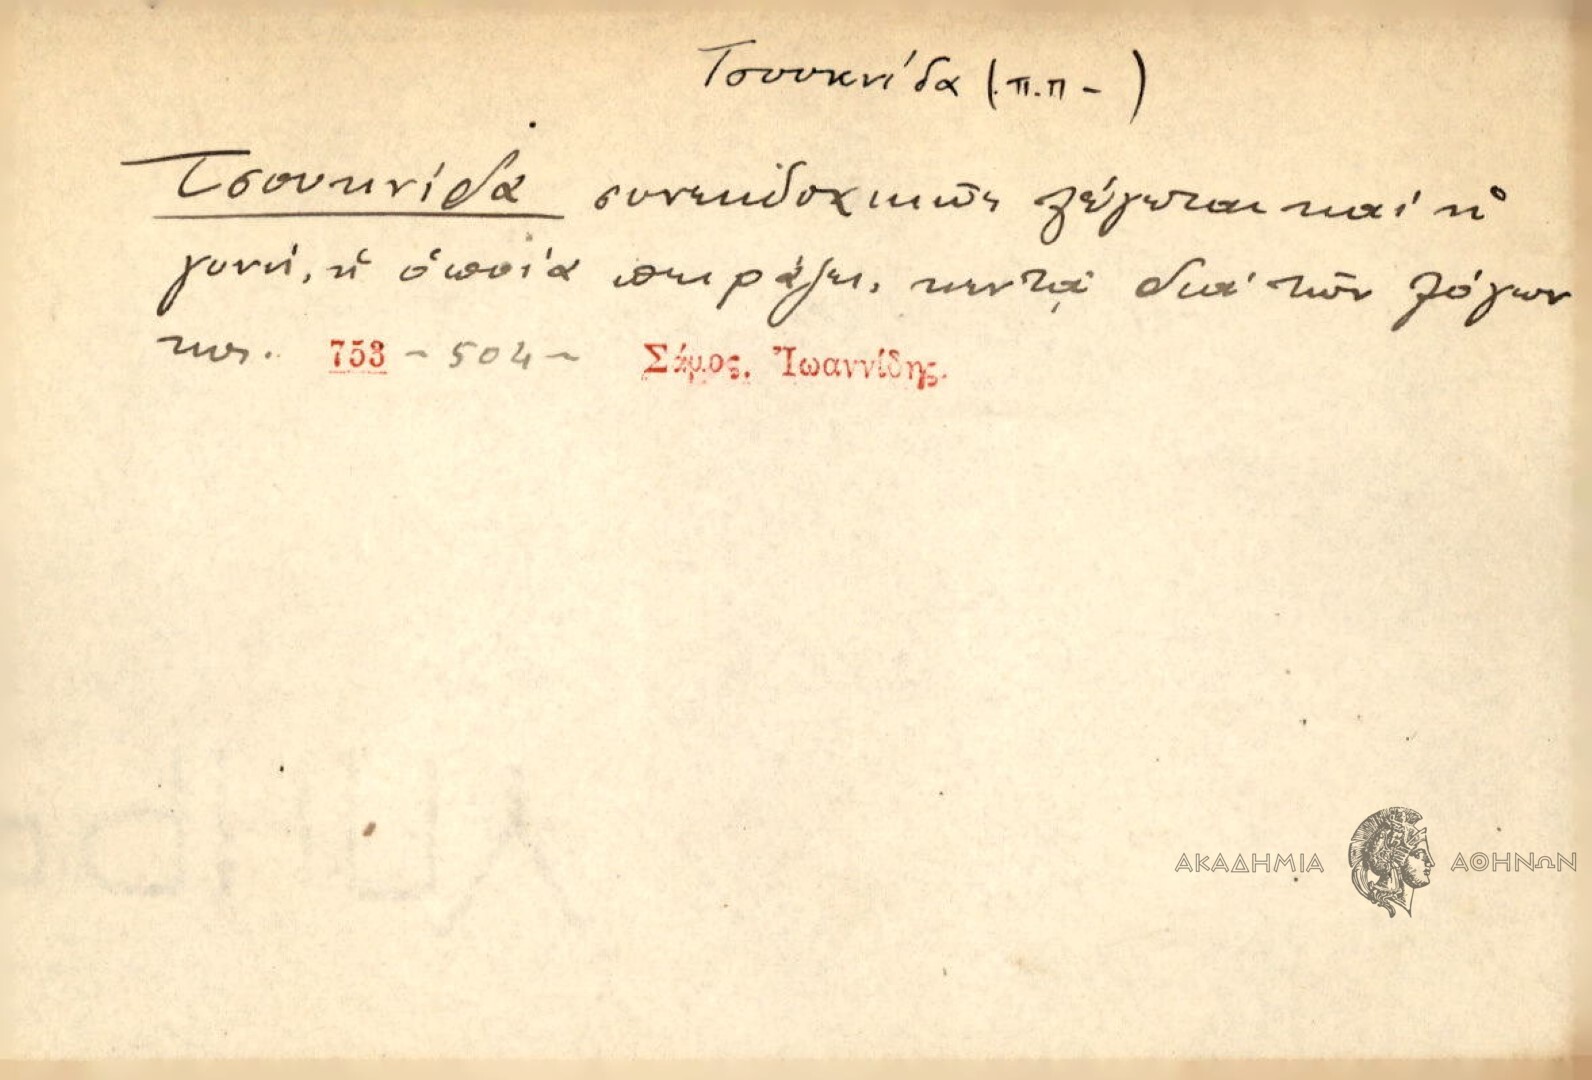 Τσουκνίδα (π.π - )
Τσουκνίδα συνεκδοχικῶς λέγεται καὶ ἡ
γυνή, ἡ ὁποία πειράζει, κεντᾷ διὰ τῶν λόγων
της. 753 - 504 - Σάμος. Ἰωαννίδης.
ΑΚΑΔΗΜΙΑ ΑΘΗΝΩΝ